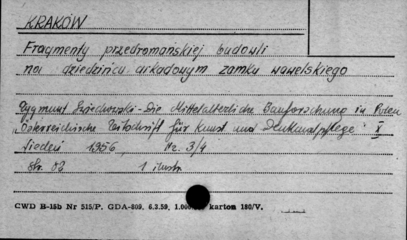 KRAKÓW
Fragmenty przedromańskiej budowli
na dziedzińcu arkadowym zamku wawelskiego
Zygmunt Świechowski - Die Mittelalterliche Bauforschung in Polen
„Österreichische Zeitschrift für Kunst und Denkmalpflege" X
Wiedeń 1956 Nr. 3/4
Str. 83 1 ilustr.
CWD B-15b Nr 515/P. GDA-809. 6.3.59, 1.000 karton 180/V.